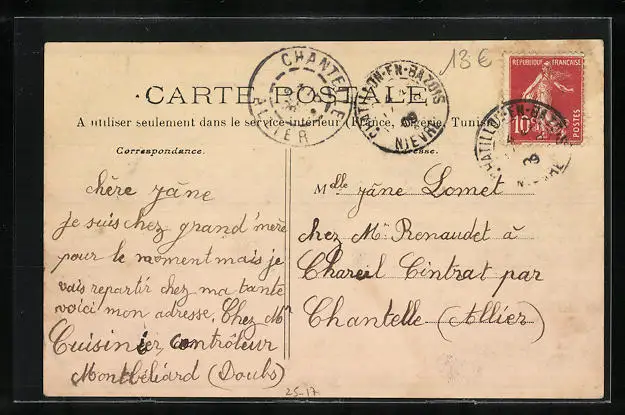 13 €
CHANTELLE
ALLIER
CHATILLON-EN-BAZOIS
NIEVRE
09
REPUBLIQUE FRANÇAISE
10
POSTES
CHATILLON-EN-BAZOIS
09
CARTE POSTALE
A utiliser seulement dans le service intérieur (France, Algérie, Tunisie
Correspondance.
chère jâne
je suis chez grand'mère
pour le moment mais je
vais repartir chez ma tante
voici mon adresse, Chez Mr
Cuisinier, contrôleur
Montbéliard (Doubs)
Mdlle jâne Lomet
chez Mr Renaudet à
Chareil Cintrat par
Chantelle (Allier)
25-17